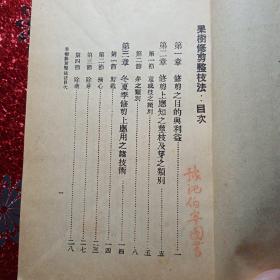 果樹修剪整枝法·目次
第一章 修剪之目的與利益⋯⋯一
第二章 修剪上應知之葉枝及芽之類別⋯⋯五
第一節 葉枝之類別⋯⋯五
第二節 芽之類別⋯⋯八
第三章 冬夏季修剪上應用之諸技術⋯⋯一四
第一節 剪截⋯⋯一四
第二節 摘心⋯⋯二三
第三節 除芽⋯⋯二七
第四節 除萌⋯⋯二八
果樹修剪整枝法目次
一